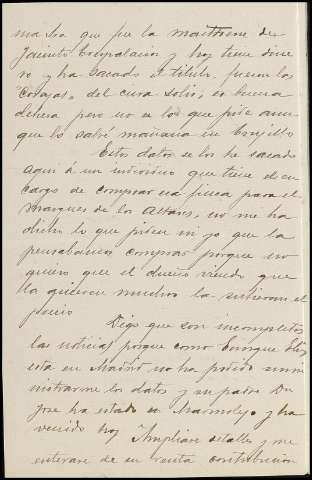 ma Sra que fue la
Jacinto y hoy tiene dine
ro y ha sacado el titulo, fueron las
"Corajas" del cura Solis, es buena
dehesa pero no se los que pide aun
que lo sabré mañana en Trujillo
Estos datos se los he sacado
aquí á un individuo que tiene el en
cargo de comprar una finca para el
marques de los Altares, no me ha
dicho lo que piden ni yo que la
pensabamos comprar porque no
quiero que el dueño viendo que
la quieren muchos la subieran el
precio
Digo que son incompletas
las noticias porque como Enrique
esta en Madrid no ha podido sumi
nistrarme los datos y su padre Dn
Jose ha estado en Marmolejo y ha
venido hoy Ampliare detalles y me
enterare de su renta contribucion